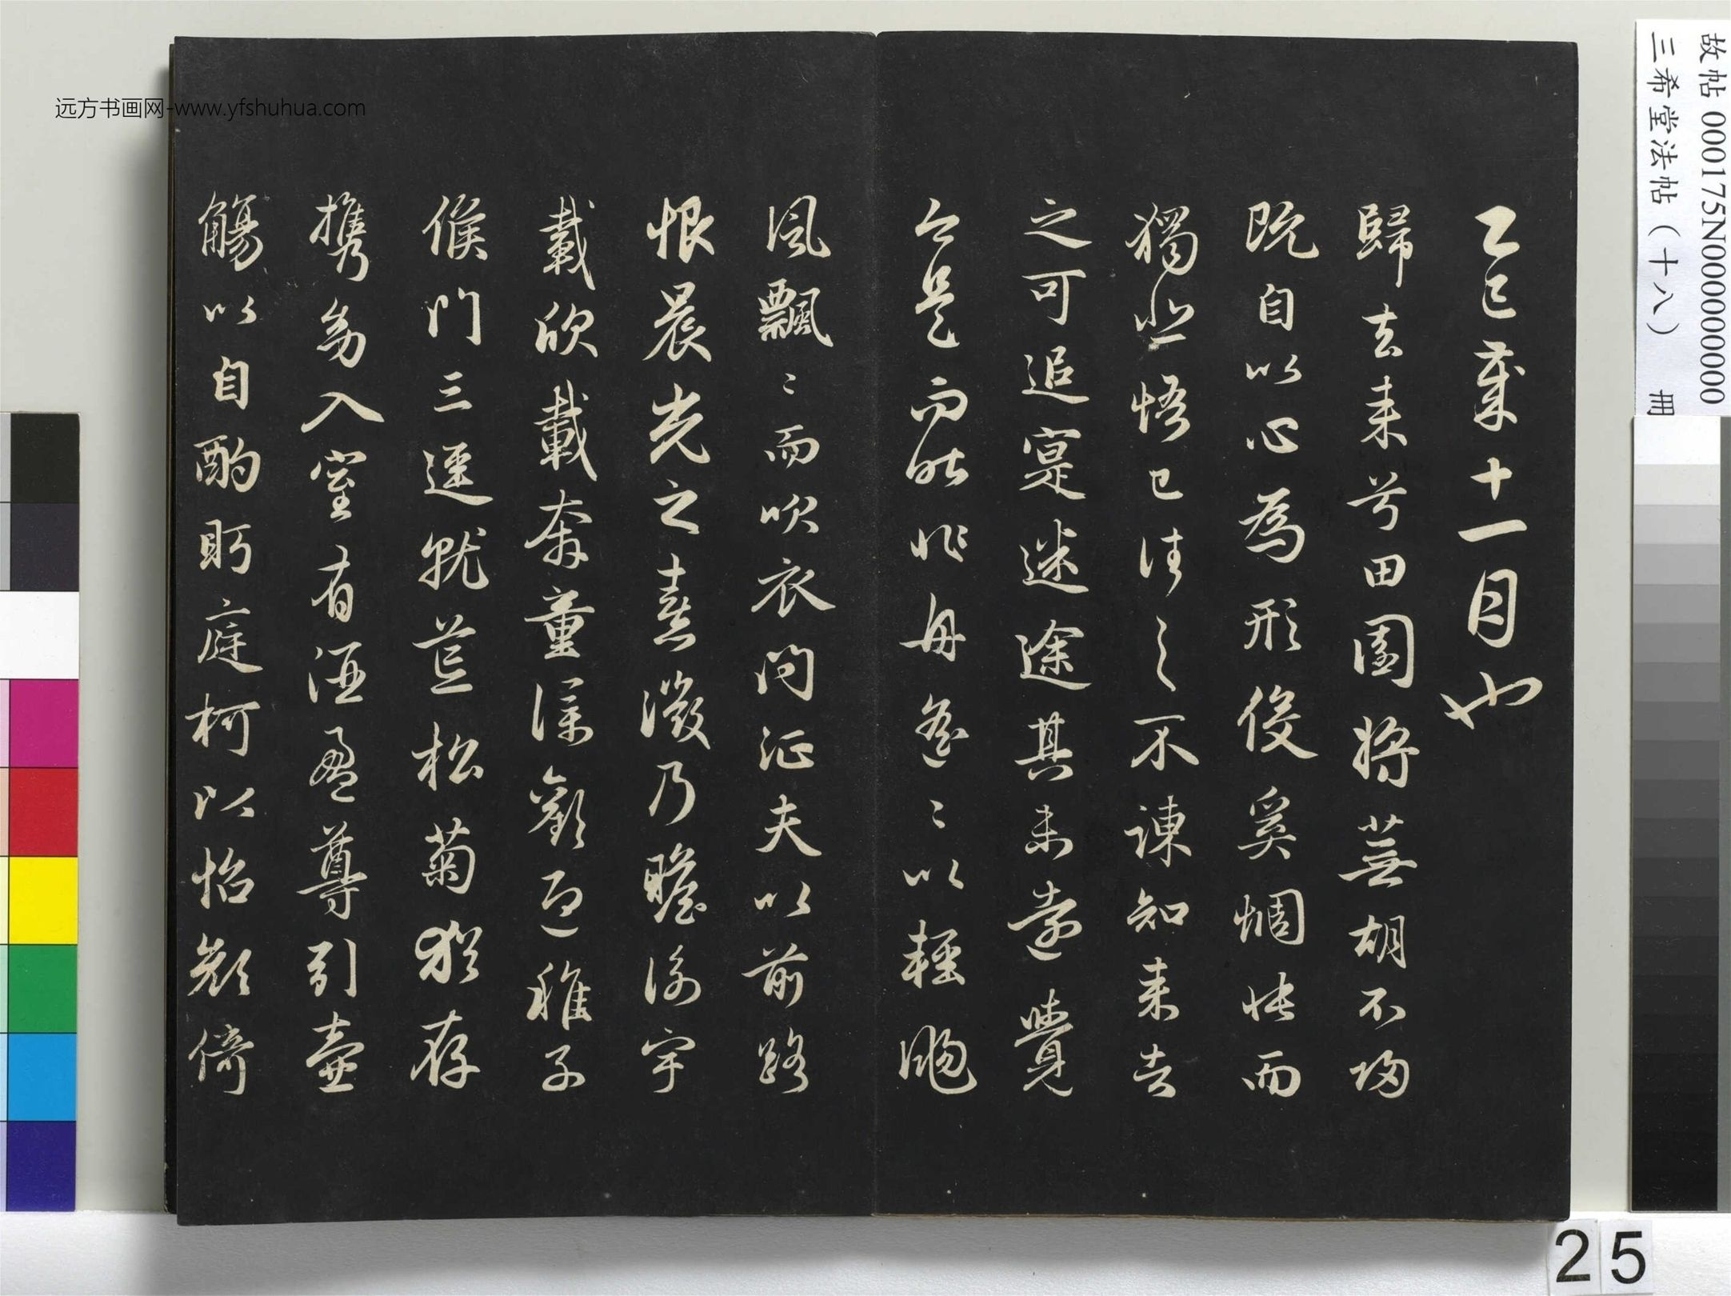 乙巳歲十一月也
歸去来兮田園將蕪胡不歸
既自以心為形役奚惆悵而
獨悲悟已往之不諫知来者
之可追寔迷途其未遠覺
今是而昨非舟遙〻以輕颺
風飄〻而吹衣問征夫以前路
恨晨光之熹微乃瞻衡宇
載欣載奔童僕歡迎稚子
候門三逕就荒松菊猶存
携幼入室有酒盈尊引壺
觴以自酌眄庭柯以怡顏倚
远方书画网-www.yfshuhua.com
故帖 000175N000000000
三希堂法帖（十八） 冊
25